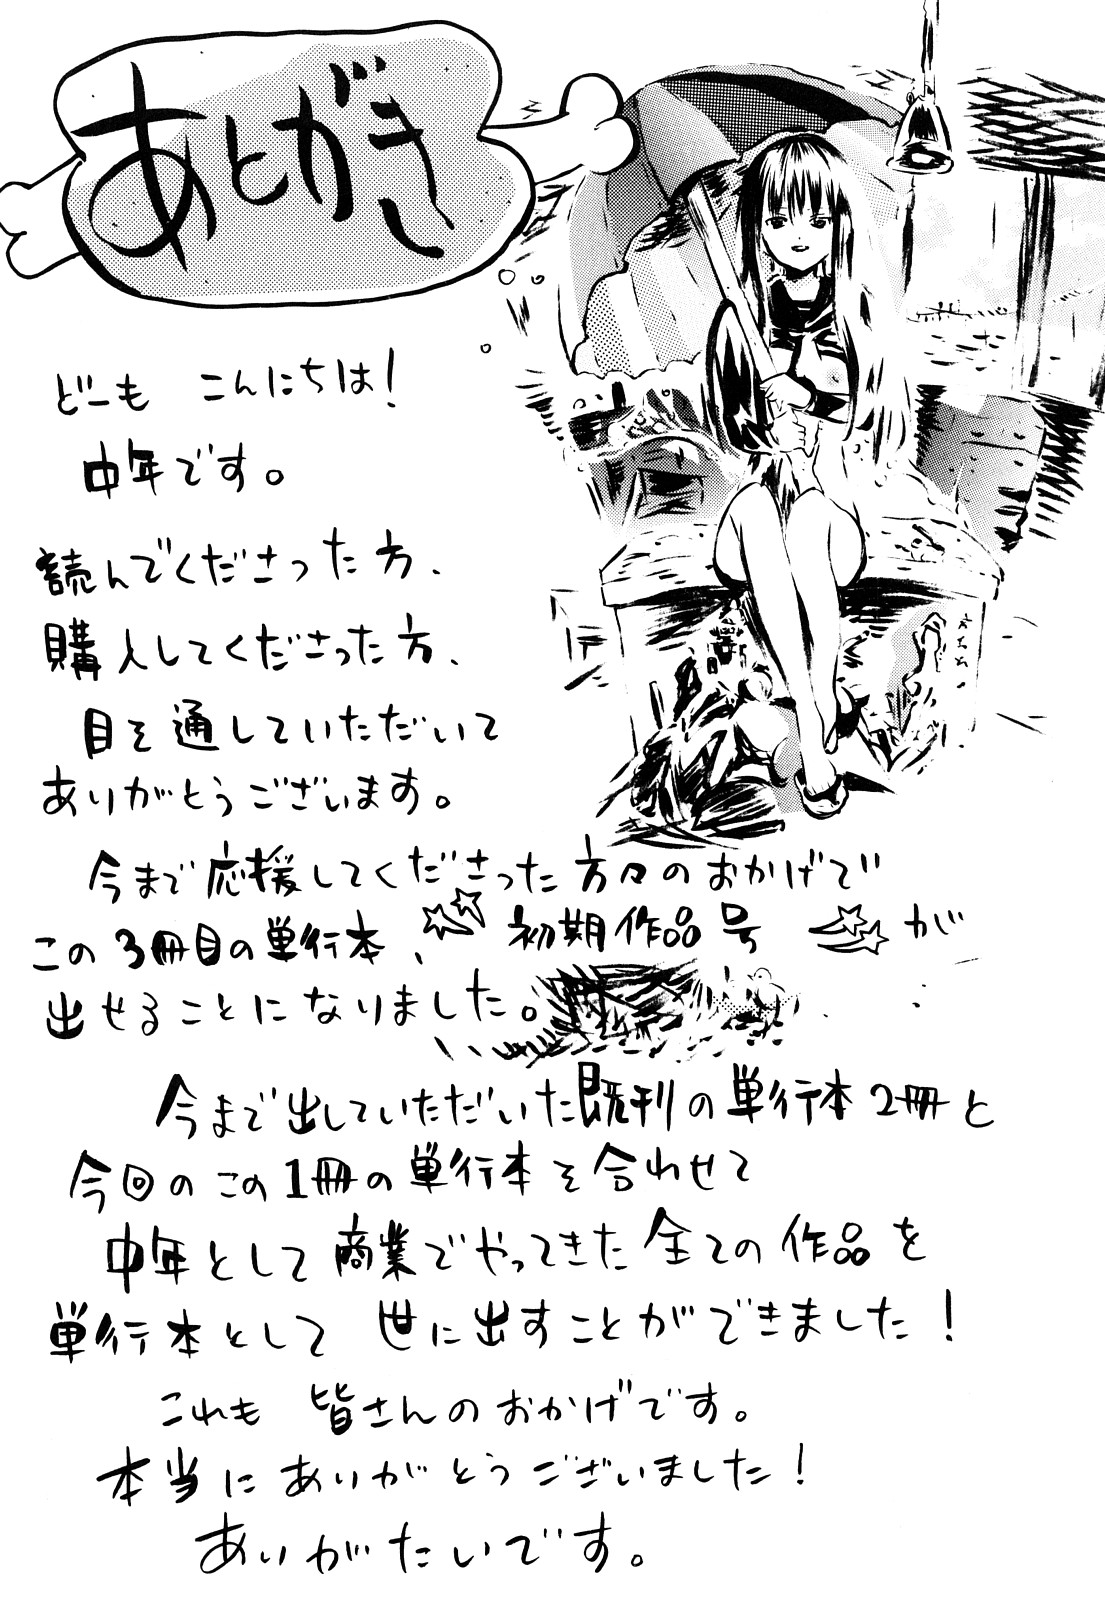 あとがき
どーも こんにちは!
中年です。
読んでくださった方、
購入してくださった方、
目を通していただいて
ありがとうございます。
今まで応援してくださった方々のおかげで
この3冊目の単行本、初期作品号が
出せることになりました。
今まで出していただいた既刊の単行本2冊と
今回のこの1冊の単行本を合わせて
中年として商業でやってきた全ての作品を
単行本として 世に出すことができました!
これも 皆さんのおかげです。
本当にありがとうございました!
ありがたいです。